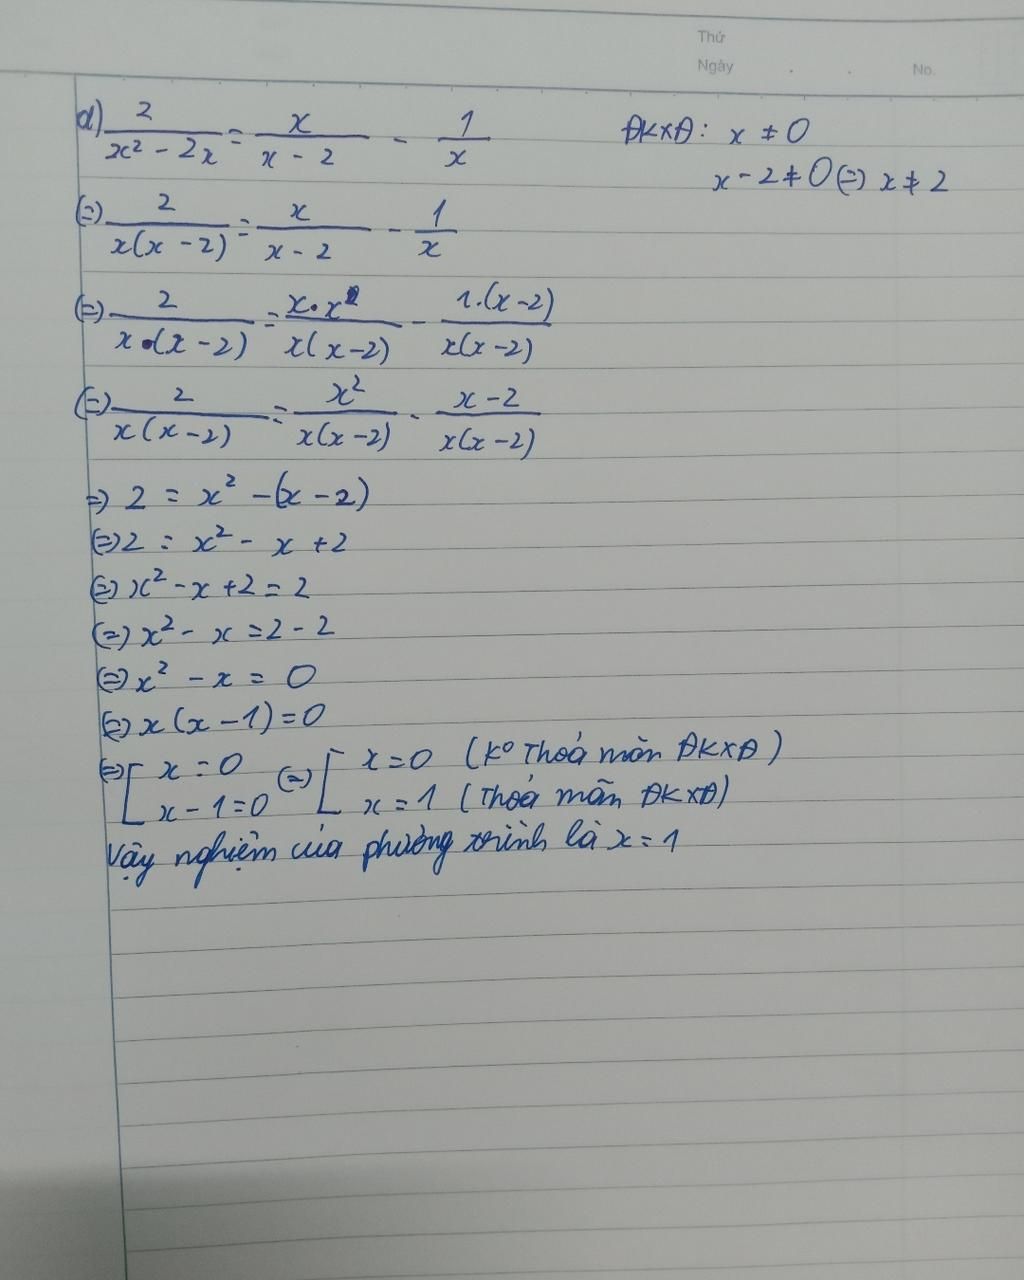 Thứ
Ngày . . No.
d) 2/(x² - 2x) = x/(x - 2) - 1/x ĐKXĐ: x ≠ 0
x - 2 ≠ 0 (=) x ≠ 2
(=) 2/(x(x - 2)) = x/(x - 2) - 1/x
(=) 2/(x.(x - 2)) = x.x/(x(x - 2)) - 1.(x - 2)/(x(x - 2))
(=) 2/(x(x - 2)) = x²/(x(x - 2)) - (x - 2)/(x(x - 2))
=) 2 = x² - (x - 2)
(=) 2 = x² - x + 2
(=) x² - x + 2 = 2
(=) x² - x = 2 - 2
(=) x² - x = 0
(=) x (x - 1) = 0
(=) [ x = 0 (=) [ x = 0 (Kº Thoả mãn ĐKXĐ)
x - 1 = 0 x = 1 (Thoả mãn ĐKXĐ)
Vậy nghiệm của phương trình là x = 1